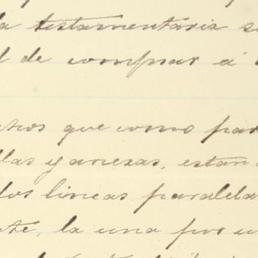 a testamentaria s
l de comprar á
tros que como par
llas y anexas, estan
dos lineas paralela
te, la una por u